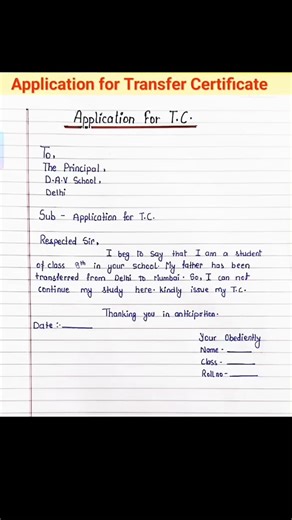 Application for Transfer Certificate
Application For T.C.
To,
The Principal,
D.A.V School,
Delhi
Sub - Application for T.C.
Respected Sir,
I beg To Say that I am a student
of class 9th in your school. My father has been
transferred from Delhi To Mumbai. So, I can not
continue my study here. kindly issue my T.C.
Thanking you in anticipation.
Date :- ______
Your Obediently
Name - ______
Class - ______
Roll no - ______